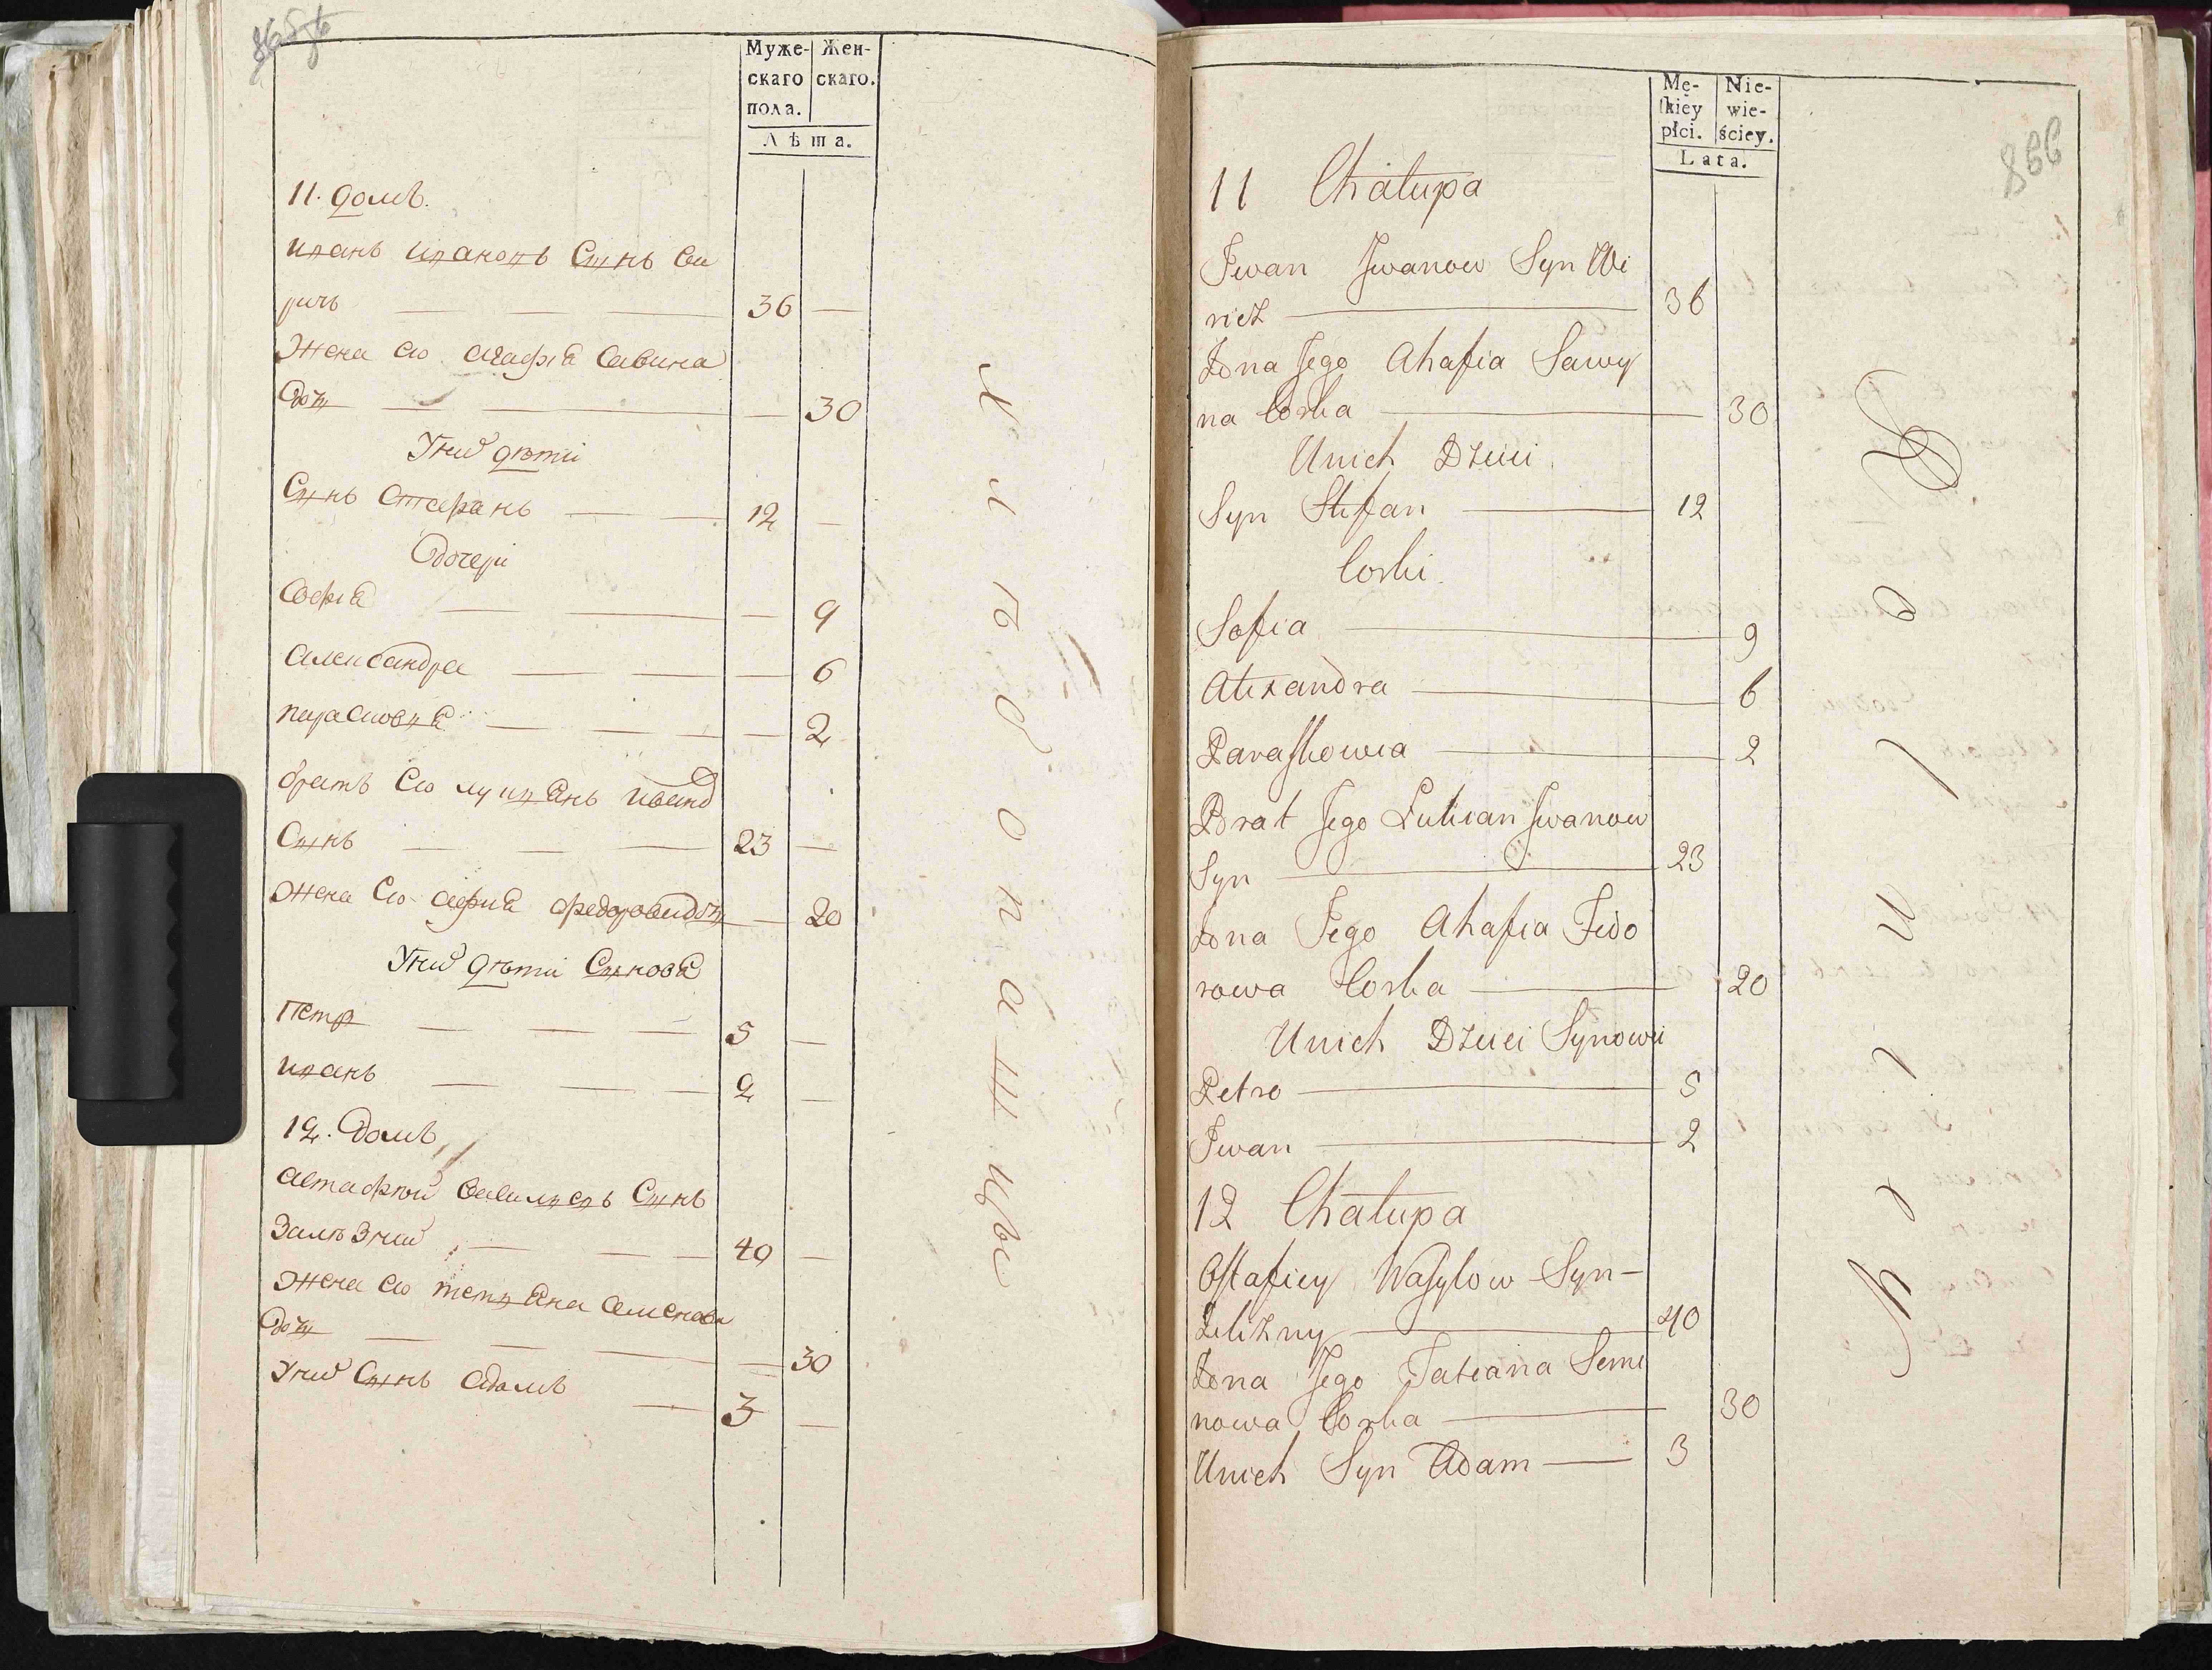 Муже-
скаго
пола.
Жен-
скаго.
Лѣта.
11. домъ.
иванъ ивановъ Сынъ Ви
ричь 36
Жена его агафiя Савина
Дочъ 30
У них дѣти
Сынъ Стефанъ 12
Дочери
Софiя 9
александра 6
парасковiя 2
братъ его лукiянъ иванов
Сынъ 23
жена его агфия федорова дочъ 20
У них дѣти Сыновя
Петр 5
иванъ 2
12. домъ
астафiй василиевъ Сынъ
Зализний 40
жена его татияна Семенова
Дочъ 30
У них Сынъ адамъ 3
Хлѣбопашцы
Mę-
ſkiey
płci.
Nie-
wie-
ściey.
Lata.
866
11 Chałupa
Jwan Jwanow Syn Wi
ricz 36
Żona Jego Ahafia Sawy
na Corka 30
Unich Dzieci
Syn Stefan 12
Corki
Sofia 9
Alexandra 6
Paraſkowia 2
Brat Jego Łukian Jwanow
Syn 23
Żona Jego Ahafia Fedo
rowa Corka 20
Unich Dzieci Synowi
Petro 5
Jwan 2
12 Chałupa
Oſtafiey Waſylow Syn
Zelizny 40
Żona Jego Tatiana Seme
nowa Corka 30
Unich Syn Adam 3